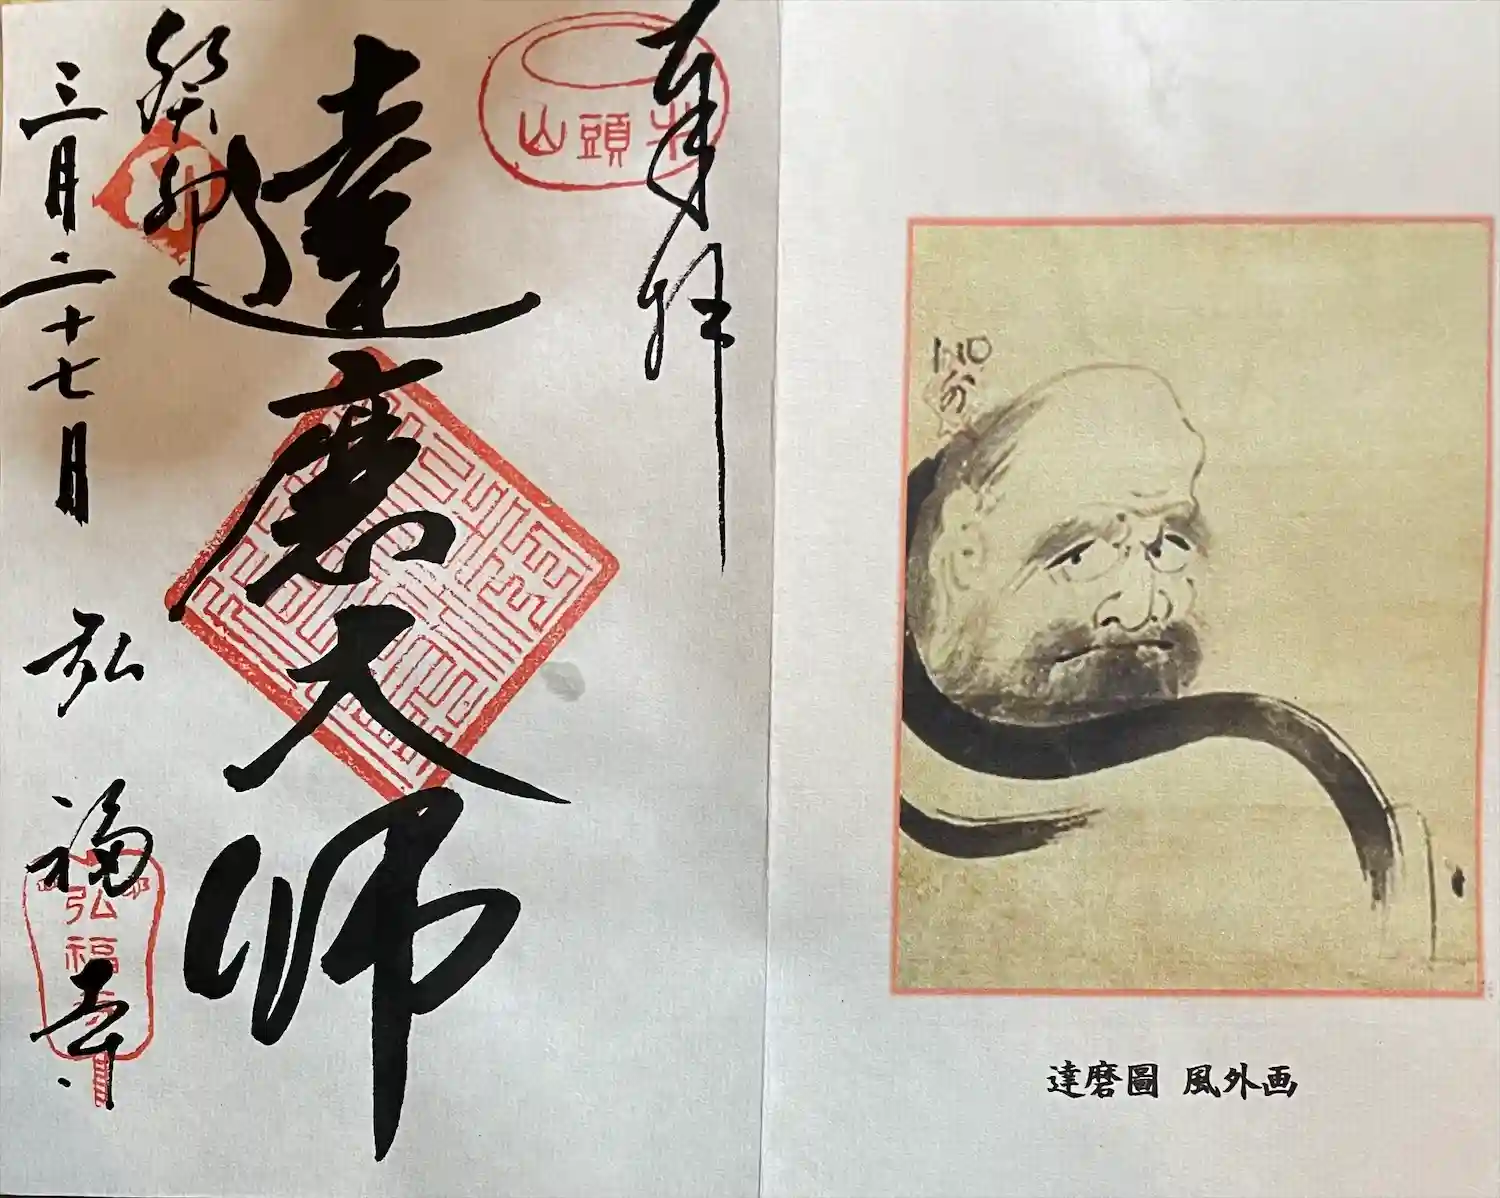 奉拝
牛頭山
達磨大師
癸卯
三月二十七日
弘福寺
弘福寺
達磨圖 風外画